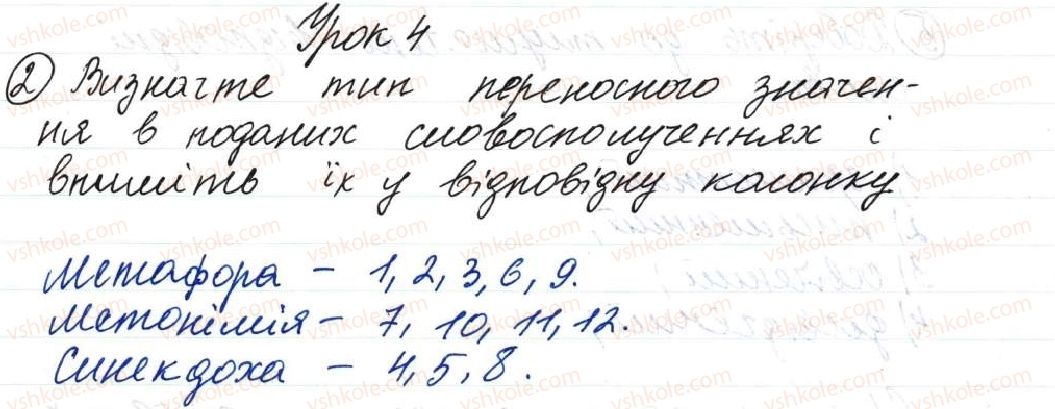 Урок 4
② Визначте тип переносного значен-
ня в поданих словосполученнях і
впишіть їх у відповідну колонку
Метафора – 1, 2, 3, 6, 9.
Метонімія – 7, 10, 11, 12.
Синекдоха – 4, 5, 8.